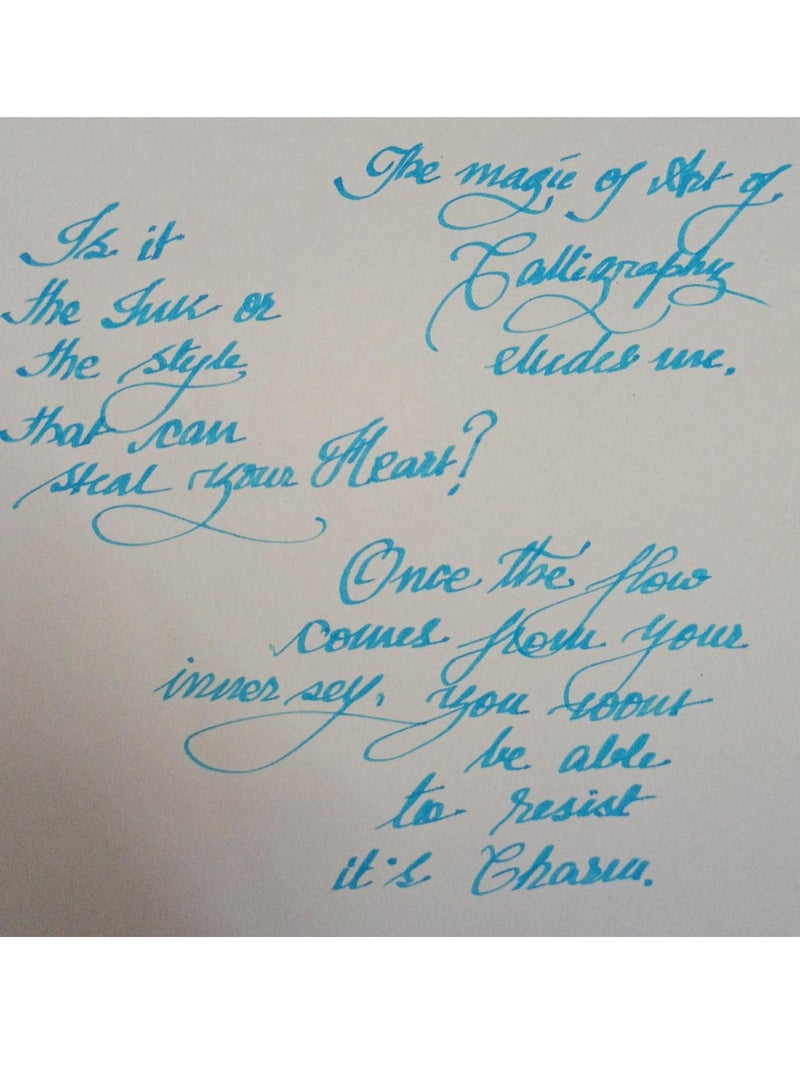 The magic of Art of
Calligraphy
eludes me.
Is it
the Ink or
the style
that can
steal your Heart?
Once the flow
comes from your
inner self, you wont
be able
to resist
it's Charm.